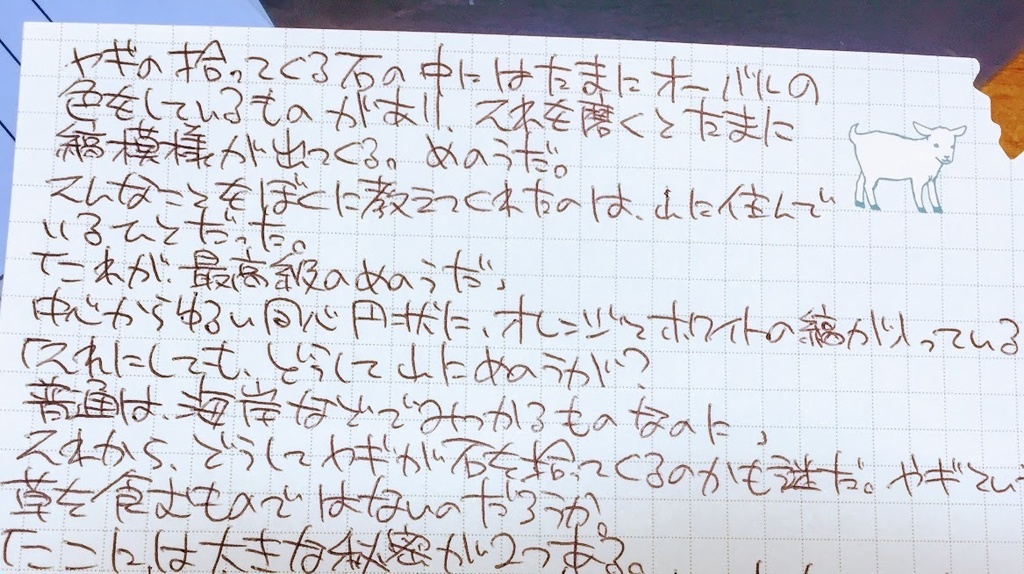 ヤギの拾ってくる石の中にはたまにオーバルの
色をしているものがあり、それを磨くとたまに
縞模様が出てくる。めのうだ。
そんなことをぼくに教えてくれたのは、山に住んで
いるひとだった。
「これが最高級のめのうだ」
中心からゆるい同心円状に、オレンジとホワイトの縞が入っている
「それにしても、どうして山にめのうが?
普通は、海岸などでみつかるものなのに」
それから、どうしてヤギが石を拾ってくるのかも謎だ。ヤギとい
草を食むものではないのだろうか。
「ここには大きな秘密が2つある。